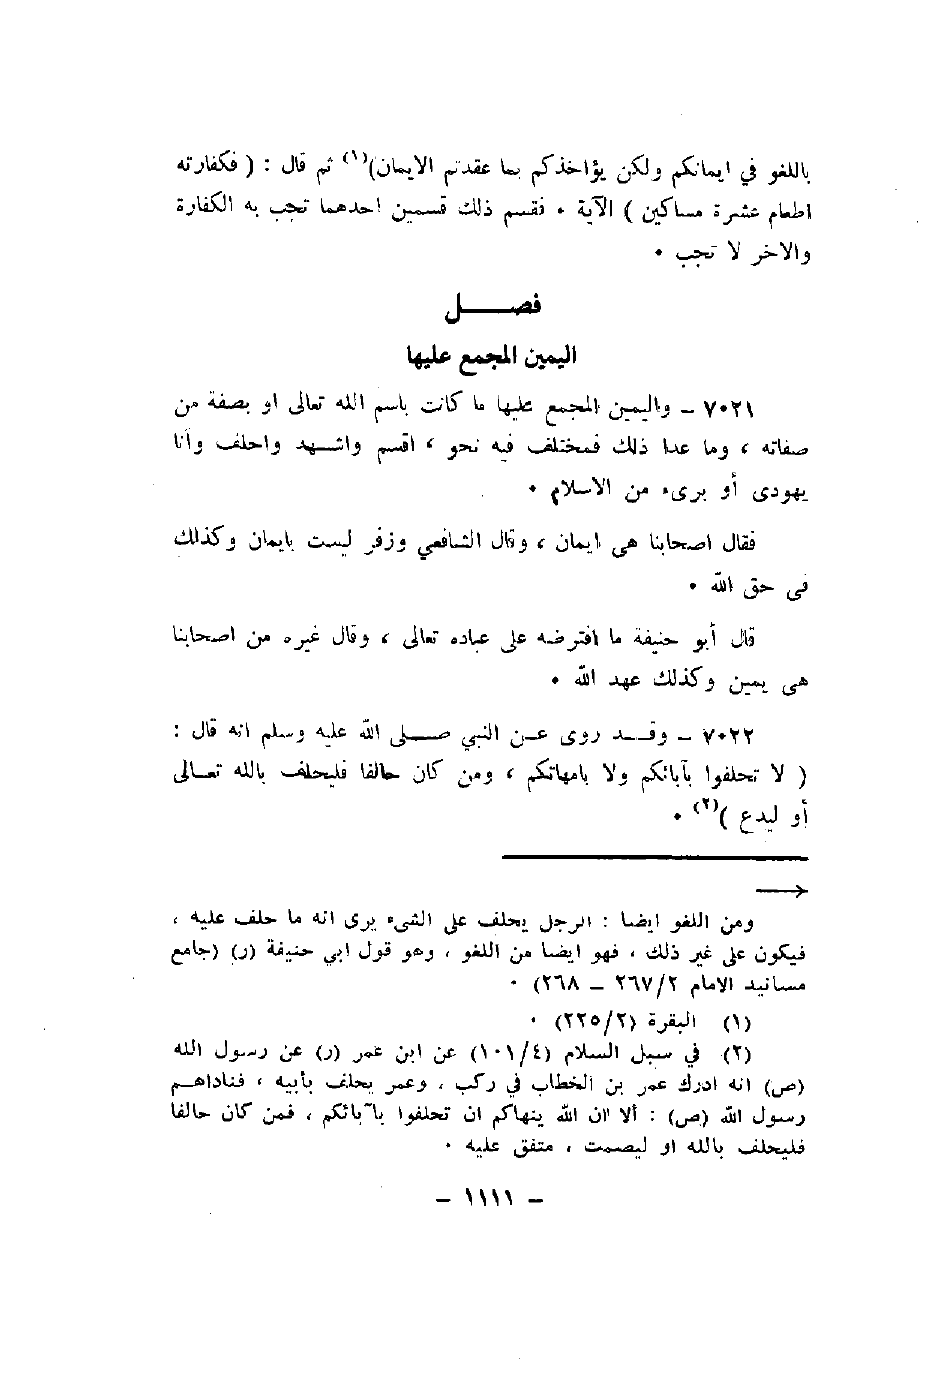 باللغو في ايمانكم ولكن يؤاخذكم بما عقدتم الايمان)(١) ثم قال : ( فكفارته
اطعام عشرة مساكين ) الآية • فقسم ذلك قسمين احدهما تجب به الكفارة
والاخر لا تجب •
فصــــل
اليمين المجمع عليها
٧٠٢١ – واليمين المجمع عليها ما كانت باسم الله تعالى او بصفة من
صفاته ، وما عدا ذلك فمختلف فيه نحو ، اقسم واشــهد واحلف وأنا
يهودى أو برىء من الاسلام •
فقال اصحابنا هى ايمان ، وقال الشافعي وزفر ليست بايمان وكذلك
فى حق الله •
قال أبو حنيفة ما افترضه على عباده تعالى ، وقال غيره من اصحابنا
هى يمين وكذلك عهد الله •
٧٠٢٢ – وقــد روى عـن النبي صــلى الله عليه وسلم انه قال :
( لا تحلفوا بآبائكم ولا بامهاتكم ، ومن كان حالفا فليحلف بالله تعـالى
أو ليدع )(٢) •
ومن اللغو ايضا : الرجل يحلف على الشىء يرى انه ما حلف عليه ،
فيكون على غير ذلك ، فهو ايضا من اللغو ، وهو قول ابي حنيفة (ر) (جامع
مسانيد الامام ٢/٢٦٧ – ٢٦٨) •
(١) البقرة (٢/٢٢٥) •
(٢) في سبل السلام (٤/١٠١) عن ابن عمر (ر) عن رسول الله
(ص) انه ادرك عمر بن الخطاب في ركب ، وعمر يحلف بأبيه ، فناداهــم
رسول الله (ص) : ألا ان الله ينهاكم ان تحلفوا بآبائكم ، فمن كان حالفا
فليحلف بالله او ليصمت ، متفق عليه •
– ١١١١ –